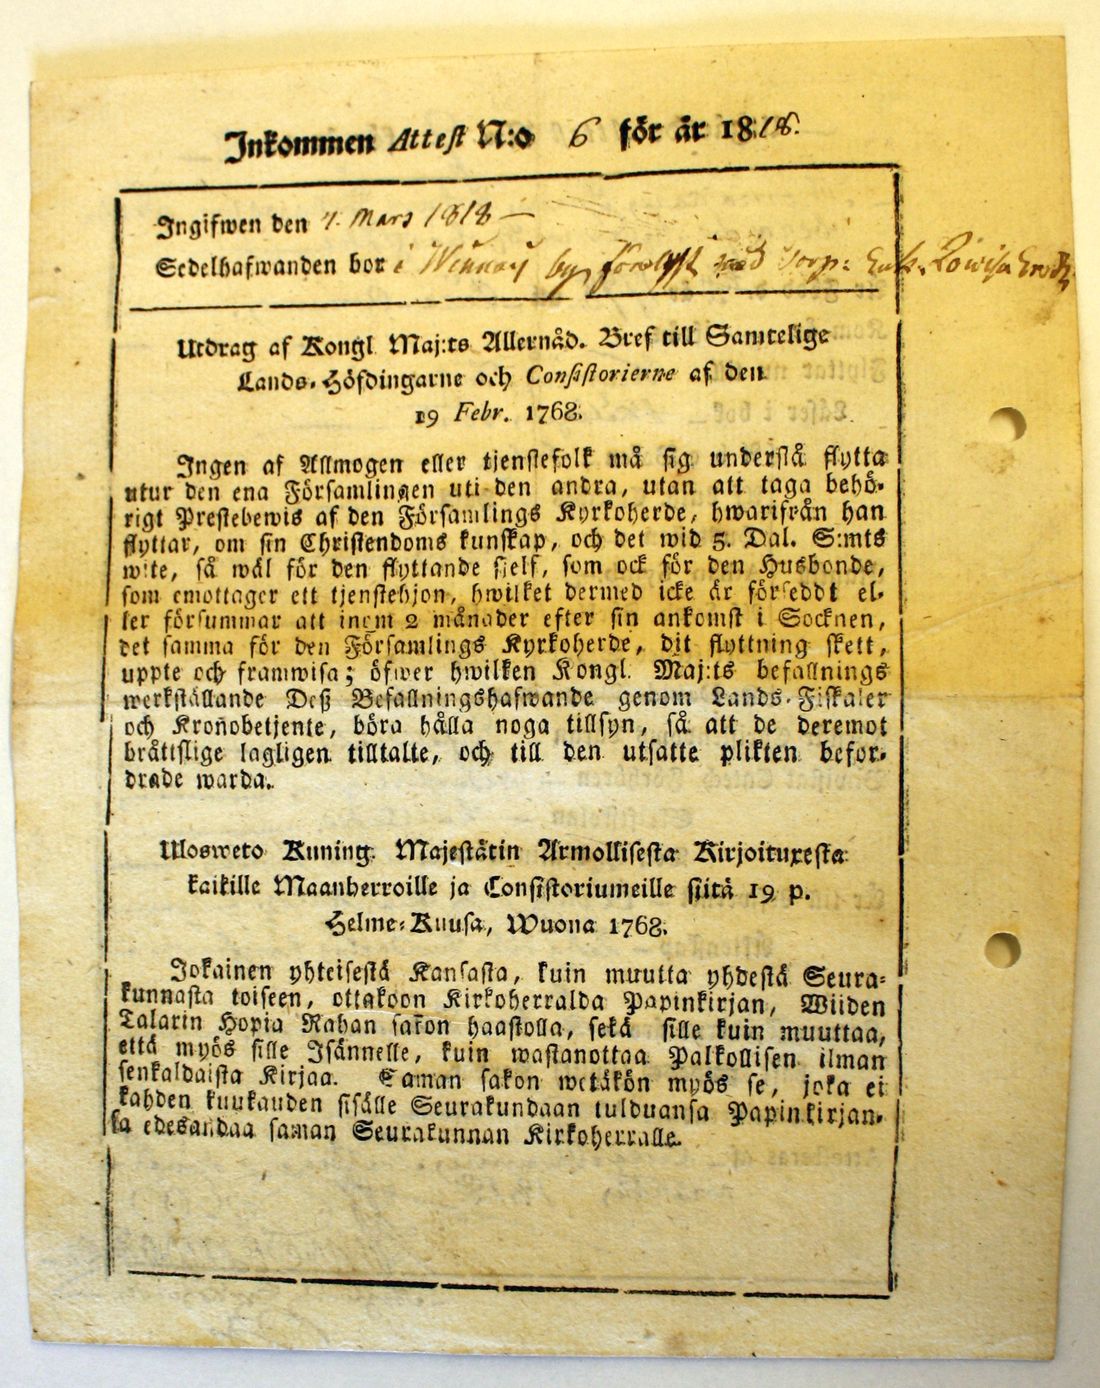 Inkommen Attest N:o 6 för år 1818.
Ingifwen den 7. Mars 1818 —
Sedelhafwanden bor i by med Lowisa
Utdrag af Kongl Maj:ts Allernåd. Bref till Samtelige
Lands-Höfdingarne och Consistorierne af den
19 Febr. 1768.
Ingen af Allmogen eller tjenstefolk må sig understå flytta
utur den ena Församlingen uti den andra, utan att taga behö-
rigt Prestebewis af den Församlings Kyrkoherde, hwarifrån han
flyttar, om sin Christendoms kunskap, och det wid 5. Dal. S:mts
wite, så wäl för den flyttande sjelf, som ock för den Husbonde,
som emottager ett tjenstehjon, hwilket dermed icke är förseddt el-
ler försummar att inom 2 månader efter sin ankomst i Socknen,
det samma för den Församlings Kyrkoherde, dit flyttning skett,
uppte och framwisa; öfwer hwilken Kongl. Maj:ts befallnings
werkställande Deß Befallningshafwande genom Lands-Fiskaler
och Kroñobetjente, böra hålla noga tillsyn, så att de deremot
bråttslige lagligen tilltalte, och till den utsatte plikten befor-
drade warda.
Ulosweto Kuning. Majestätin Armollisesta Kirjoituxesta
kaikille Maanherroille ja Consistoriumeille siitä 19 p.
Helme-Kuusa, Wuona 1768.
Jokainen yhteisestä Kansasta, kuin muutta yhdestä Seura-
kunnasta toiseen, ottakoon Kirkoherralda Papinkirjan, Wiiden
Talarin Hopia Rahan sakon haastolla, sekä sille kuin muuttaa,
että myös sille Isännelle, kuin wastanottaa Palkollisen ilman
senkaldaista Kirjaa. Saman sakon wetäkön myös se, joka ei
kahden kuukauden sisälle Seurakundaan tulduansa Papinkirjan-
sa edesandaa saman Seurakunnan Kirkoherralle.